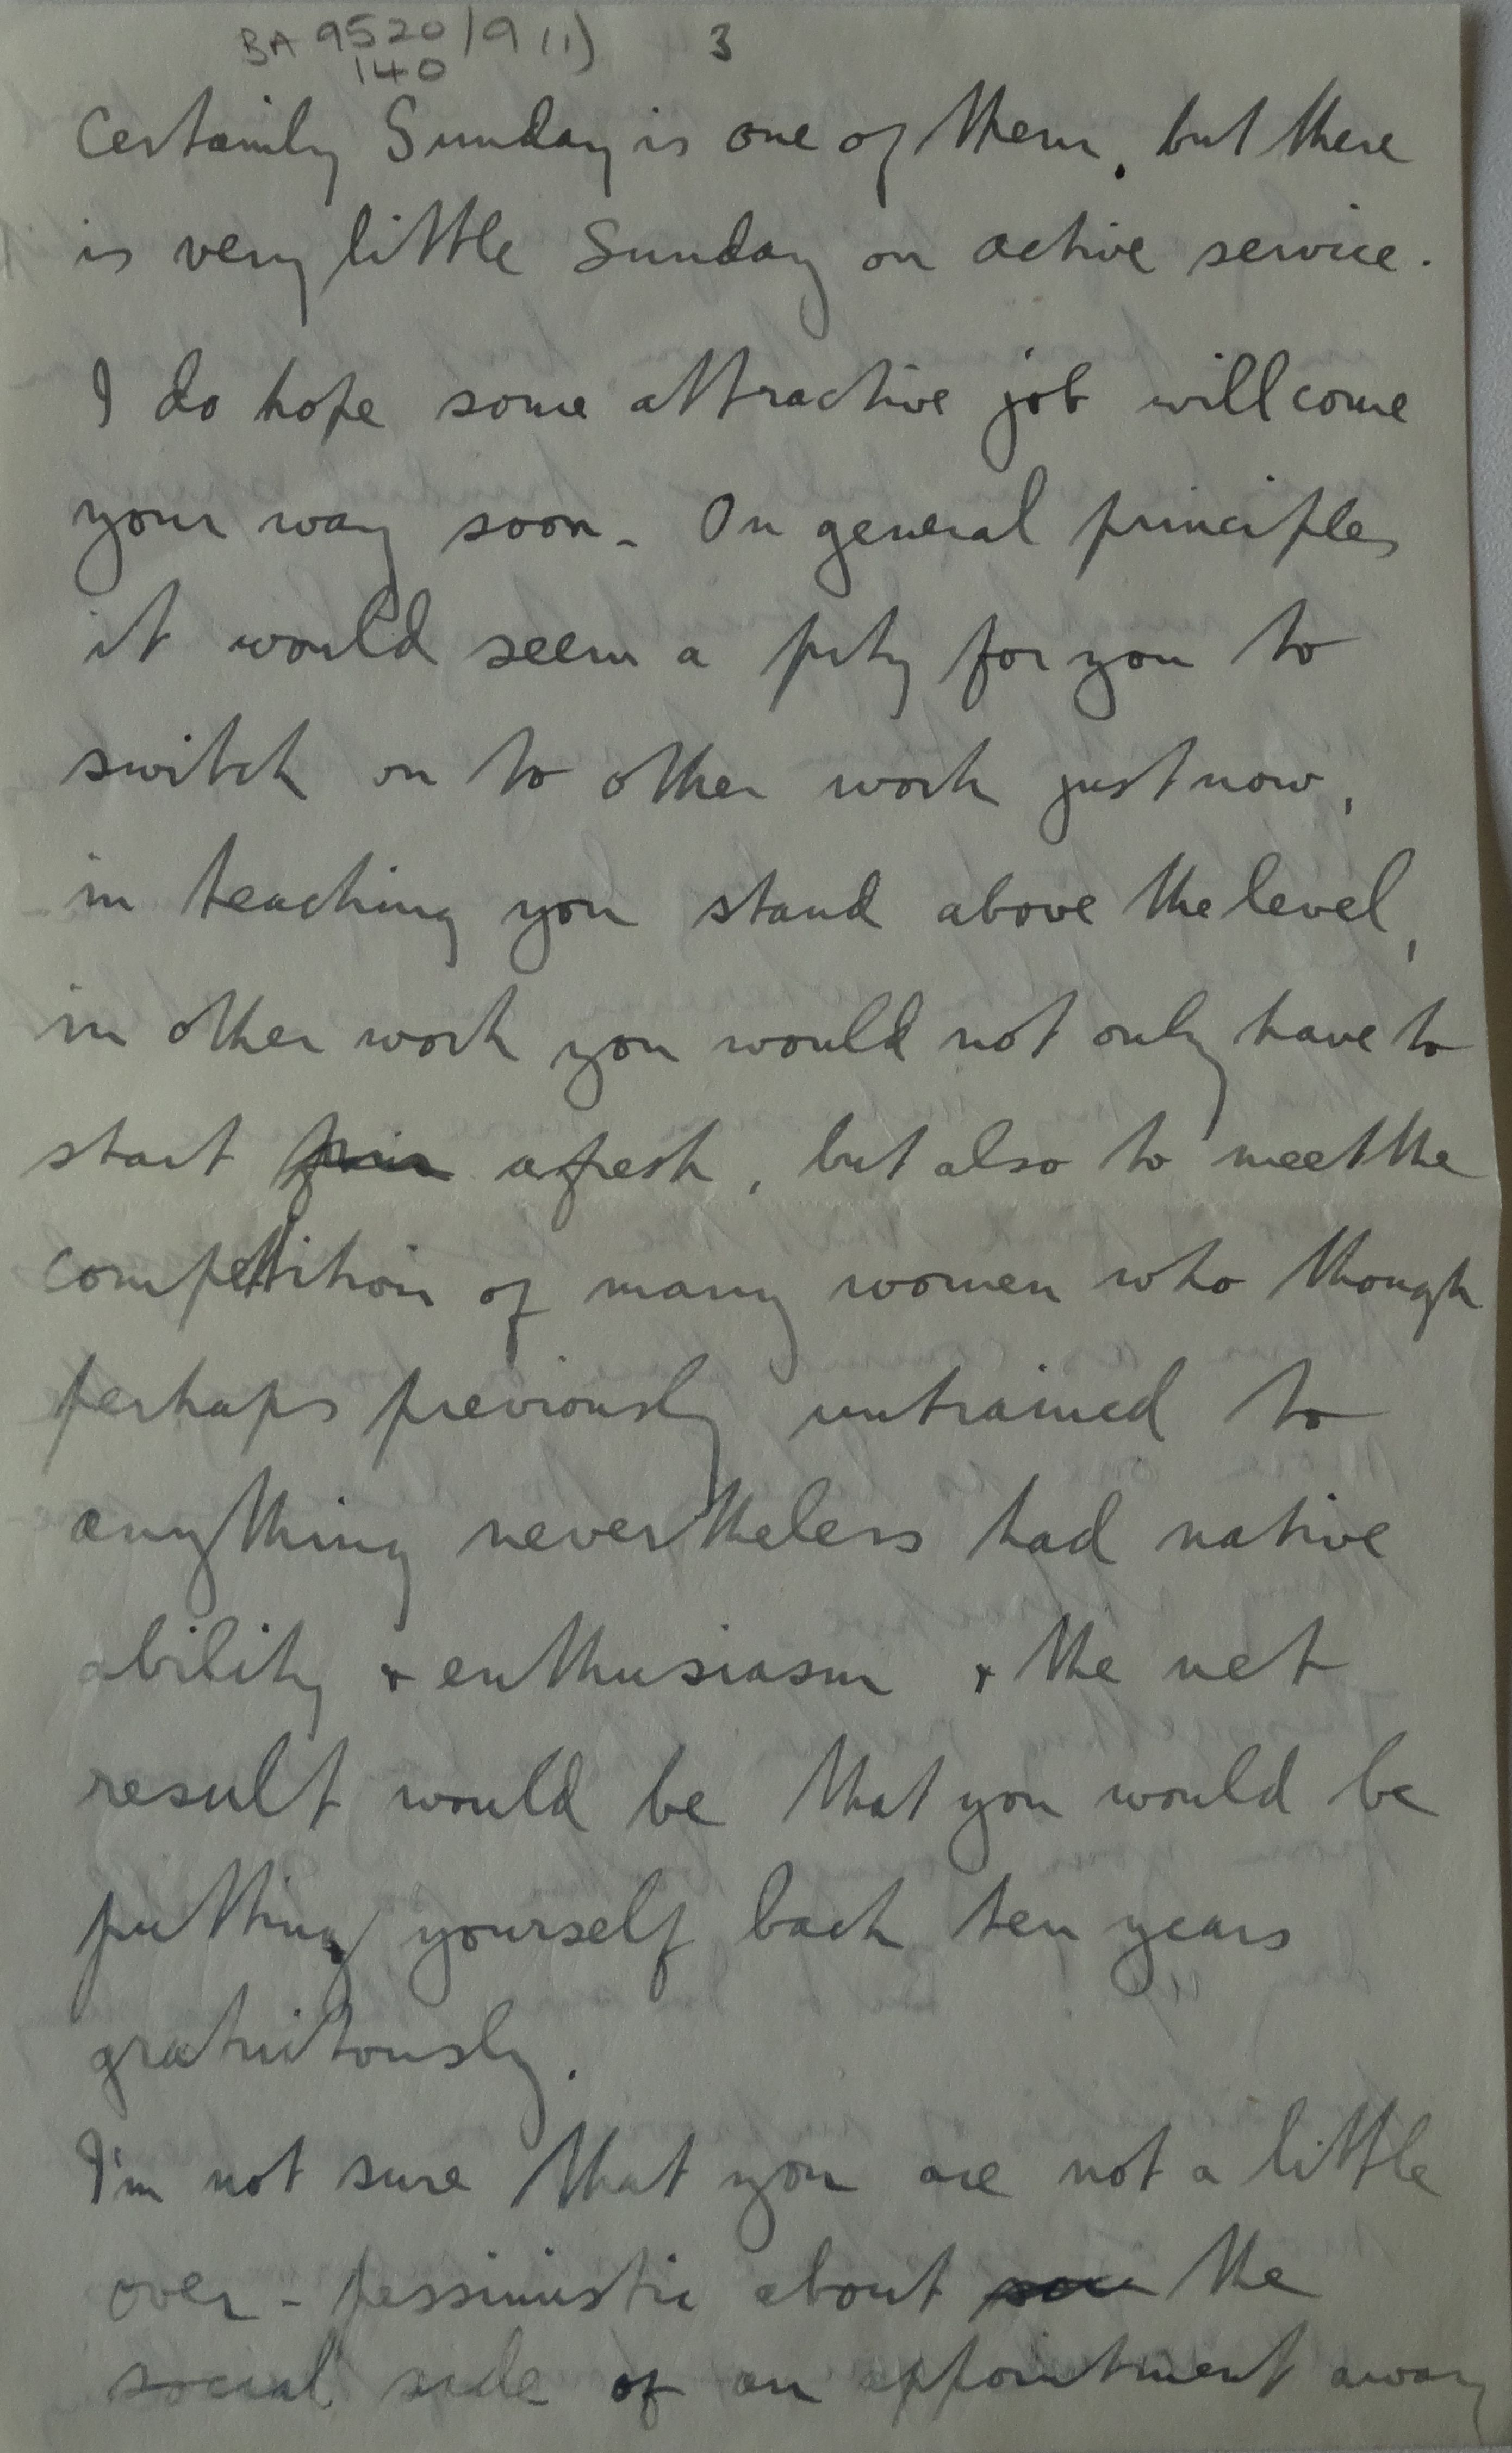 BA 9520/9 (1) 3
140
Certainly Sunday is one of them, but there
is very little Sunday on active service.
I do hope some attractive job will come
your way soon. On general principles
it would seem a pity for you to
switch on to other work just now,
in teaching you stand above the level,
in other work you would not only have to
start afresh, but also to meet the
competition of many women who though
perhaps previously untrained to
anything nevertheless had native
ability + enthusiasm + the net
result would be that you would be
putting yourself back ten years
gratuitously.
I'm not sure that you are not a little
over-pessimistic about the
social side of an appointment away